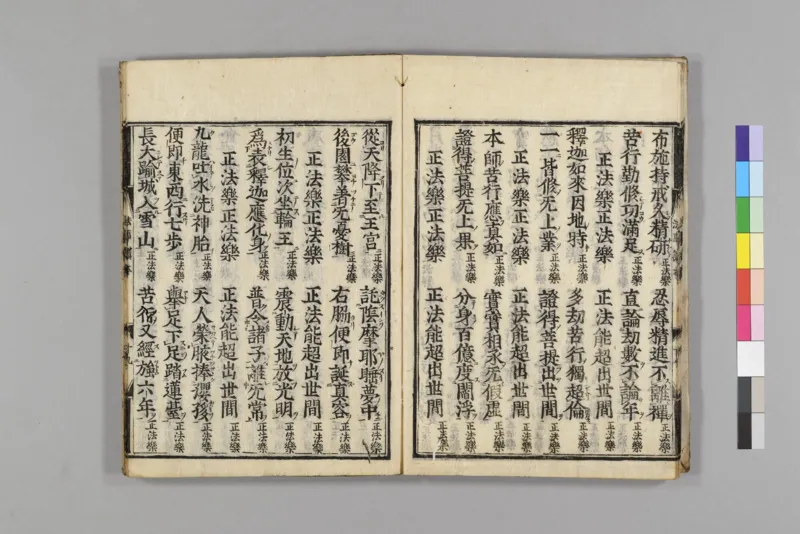 布施持戒久精研正法樂 忍辱精進不離禪正法樂
苦行勤修功滿足正法樂 直論劫數不論年正法樂
正法樂正法樂 正法能超出世間
釋迦如來因地時正法樂 多劫苦行獨超倫正法樂
一一皆修无上業正法樂 證得菩提出世間正法樂
正法樂正法樂 正法能超出世間
本師苦行應真如正法樂 實實相承无假虛正法樂
證得菩提无上果正法樂 分身百億度閻浮正法樂
正法樂正法樂 正法能超出世間
從天降下至王宮正法樂 託陰摩耶睡夢中正法樂
後園攀著无憂樹正法樂 右脇便即誕真容正法樂
正法樂正法樂 正法能超出世間
初生位次坐輪王正法樂 震動天地放光明正法樂
為表釋迦應化身正法樂 普令諸子離无常正法樂
正法樂正法樂 正法能超出世間
九龍吐水洗神胎正法樂 天人榮腋捧瓔孩正法樂
便即東西行七步正法樂 舉足下足踏蓮臺正法樂
長大踰城入雪山正法樂 苦行又經於六年正法樂